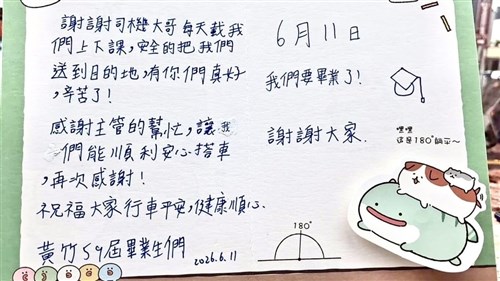 謝謝司機大哥每天載我
們上下課,安全的把我們
送到目的地,有你們真好
,辛苦了!
感謝主管的幫忙,讓我
們能順利安心搭車
,再次感謝!
祝福大家行車平安,健康順心.
黃竹59屆畢業生們
2026.6.11
6月11日
我們要畢業了!
謝謝大家.
180°
嘿嘿
這是180°